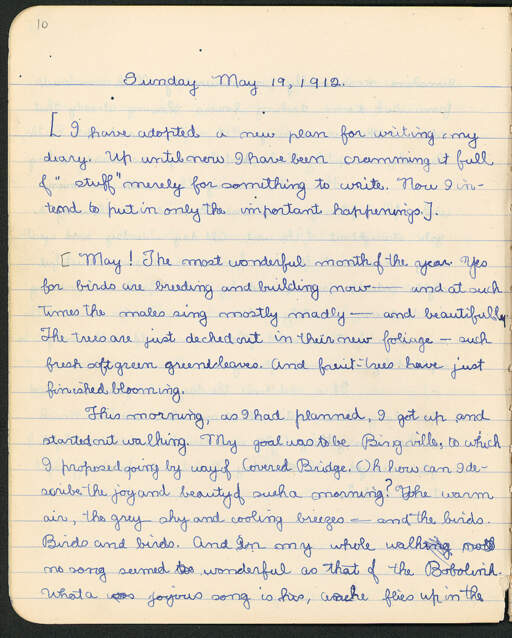 10
Sunday May 19, 1912.
[ I have adopted a new plan for writing my
diary. Up until now I have been cramming it full
of "stuff" merely for something to write. Now I in-
tend to put in only the important happenings.].
[ May! The most wonderful month of the year. Yes
for birds are breeding and building now — and at such
times the males sing mostly madly — and beautifully.
The trees are just decked out in their new foliage — such
fresh soft green green leaves. And fruit-trees have just
finished blooming.
This morning, as I had planned, I got up and
started out walking. My goal was to be Bingville, to which
I proposed going by way of Covered Bridge. Oh how can I de-
scribe the joy and beauty of such a morning? The warm
air, the grey sky and cooling breezes — and the birds.
Birds and birds. And in my whole walk
no song seemed so wonderful as that of the Bobolink.
What a joyous song is his, as he flies up in the